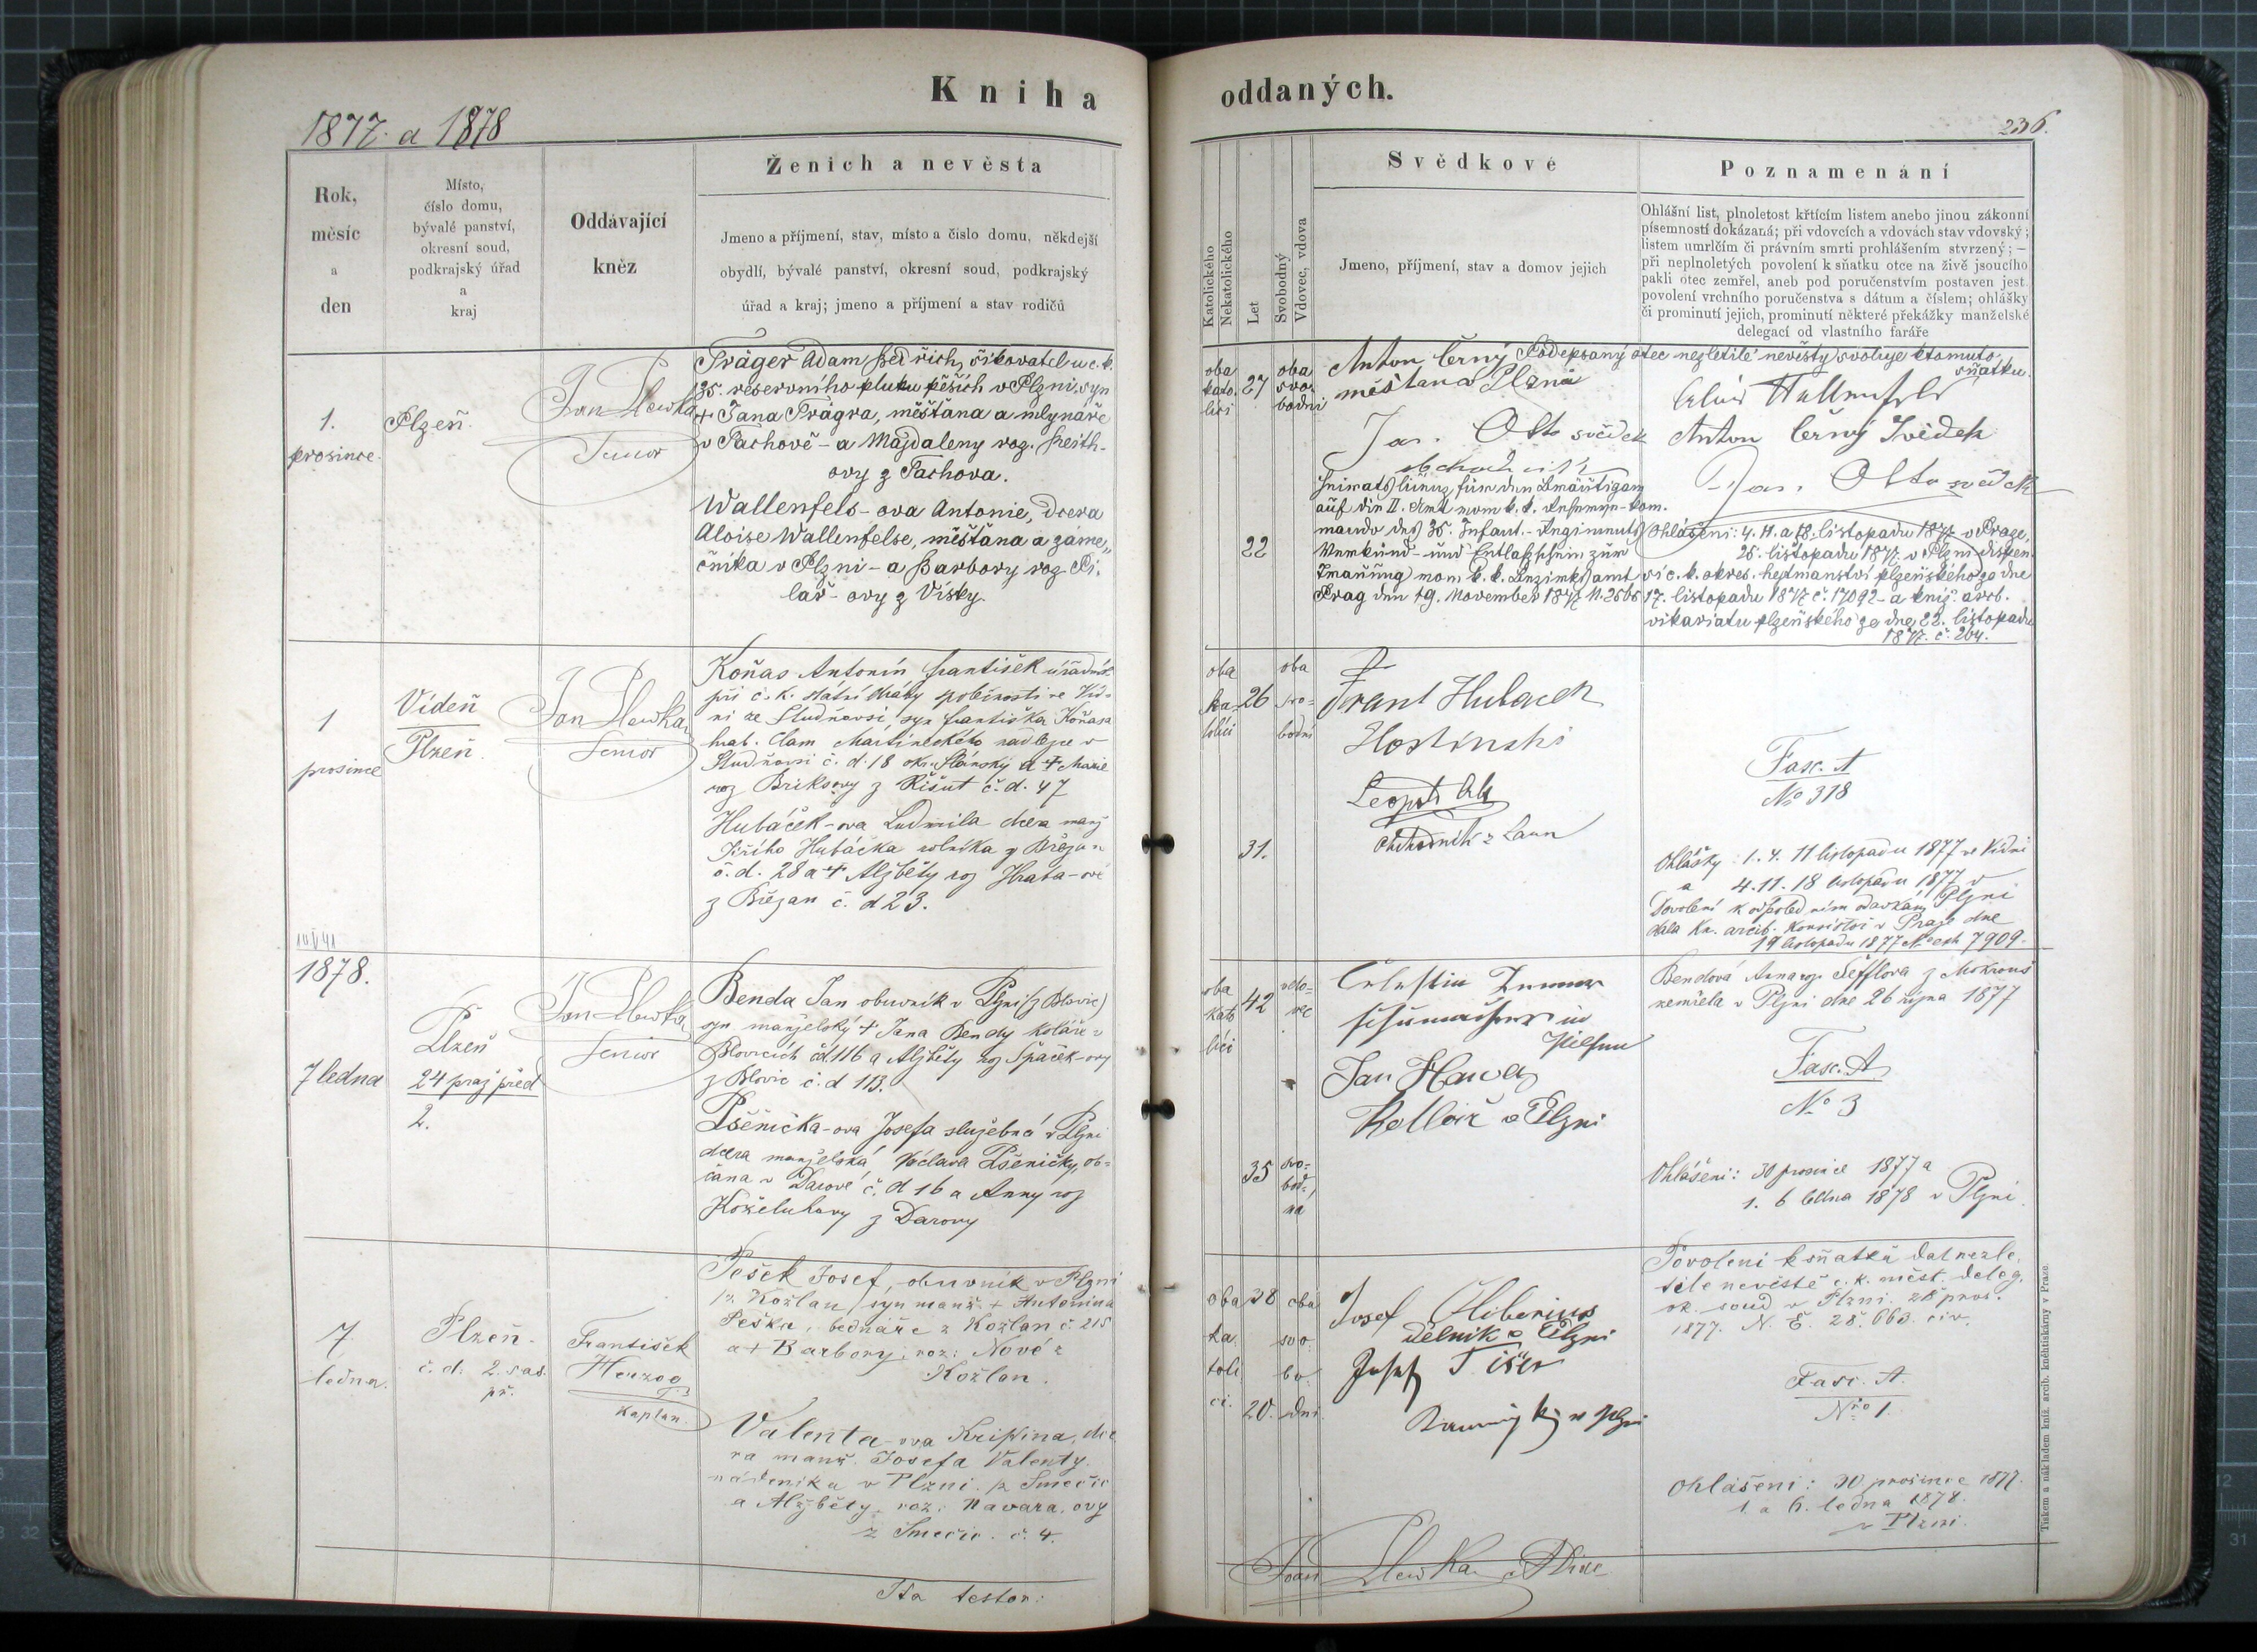 Kniha oddaných.
1877 a 1878
236.
Rok,
měsíc
a
den
Místo,
číslo domu,
bývalé panství,
okresní soud,
podkrajský úřad
a
kraj
Oddávající
kněz
Ženich a nevěsta
Jmeno a příjmení, stav, místo a číslo domu, někdejší
obydlí, bývalé panství, okresní soud, podkrajský
úřad a kraj; jmeno a příjmení a stav rodičů
Katolického
Nekatolického
Let
Svobodný
Vdovec, vdova
Svědkové
Jmeno, příjmení, stav a domov jejich
Poznamenání
Ohlášní list, plnoletost křtícím listem anebo jinou zákonní
písemností dokázaná; při vdovcích a vdovách stav vdovský;
listem umrlčím či právním smrti prohlášením stvrzený; —
při neplnoletých povolení k sňatku otce na živě jsoucího
pakli otec zemřel, aneb pod poručenstvím postaven jest
povolení vrchního poručenstva s dátum a číslem; ohlášky
či prominutí jejich, prominutí některé překážky manželské
delegací od vlastního faráře
1.
prosince.
Plzeň.
Jan Hlewka
Senior
Träger Adam Bedřich, šikovatel u c. k.
35. reservního pluku pěších v Plzni, syn
+ Jana Trägra, měšťana a mlynáře
v Tachově - a Majdaleny roz.
ovy z Tachova.
Wallenfels-ova Antonie, dcera
Aloise Wallenfelse, měšťana a záme„
čníka v Plzni - a Barbory roz. Pi-
lař-ovy z Vísky.
oba
kato
líci
27
22
oba
svo
bodni
Anton Černý
měštan v Plzni
Jos. Otto svědek
obchodník
auf die II. Art vom k. k.
mando des 35. Infant.-Regiments
Verkünd- und Entlaßschein zur
Trauung vom k. k. Bezirksamt
Prag den 19. November 1877
Podepsaný otec nezletilé nevěsty svoluje ktomuto
sňatku.
Alois Wallenfels
Anton Černý Svědek
Jos. Otto svědek
Ohlášení: 4. 11. a 18. listopadu 1877 v Praze,
25. listopadu 1877 v Plzni dispen
sí c. k. okres. hejtmanství plzeňského ze dne
17. listopadu 1877 č. 17092 - a kníž. arcb.
vikariatu plzeňského ze dne 22. listopadu
1877. č. 264.
1
prosince
Vídeň
Plzeň.
Jan Hlewka
Senior
Koňas Antonín František úřadník
při c. k. státní dráhy společnosti ve Víd-
ni ze Studňovsi, syn Františka Koňasa
hrab. Clam Martinického nadlejce v
Studňovsi č. d. 18 okr. Slánský a + Marie
roz Briksovy z Řišut č. d. 47
Hubáček-ova Ludmila dcera manž
Jiřího Hubáčka rolníka z Břežan
č. d. 28 a + Alžběty roz
z Břežan č. d 23.
oba
ka-
tolíci
26
31.
oba
svo-
bodni
Frant Hubacek
Hostinski
Leopold
obchodník z Laun
Fasc. A
No 318
Ohlášky: 1. 4. 11 listopadu 1877 ve Vídni
a 4. 11. 18 listopadu 1877 v
Plzni
Dovolení k odpoledním oddavkám
dala kn. arcib. konsistoř v Praze dne
19 listopadu 1877 7909.
1878.
7 ledna
Plzeň
24 praž před
2.
Jan Hlewka
Senior
Benda Jan obuvník v Plzni (z Blovic)
syn manželský + Jana Bendy koláře v
Blovicích čd. 116 a Alžběty roz Špaček-ovy
z Blovic č. d 113.
Pšenička-ova Josefa služebná v Plzni
dcera manželská Václava Pšeničky, ob-
čana v Darové č. d 16 a Anny roz
Koželuhovy z Darovy
oba
kato
líci
42
35
vdo-
vec
svo-
bod-
na
Cölestin
Schumacher in
Pilsen
Jan Hawa
Kollář v Plzni
Bendová Anna roz Šefflova z Mokrouš
zemřela v Plzni dne 26 října 1877
Fasc. A
No 3
Ohlášeni: 30 prosince 1877 a
1. 6 ledna 1878 v Plzni
7.
ledna.
Plzeň.
č. d: 2. sas.
př.
František
Herzog
Kaplan.
Pešek Josef, obuvník v Plzni
/z Kožlan/ syn manž. + Antonína
Peška, bednáře z Kožlan č. 215
a + Barbory, roz: Nové z
Kožlan.
Valenta-ova Kristina, dce
ra manž. Josefa Valenty.
nádenika v Plzni /z Smečic
a Alžběty, roz: Navara, ovy
z Smečic. č. 4.
oba
ka
toli
ci.
38
20.
oba
svo
bo
dni
Josef Oliberius
dělnik v Plzni
Josef Tišer
Povoleni k sňatku dal nezle,
tilé nevěstě c. k. měst. deleg.
ok. soud v Plzni. 28 pros.
1877. N. E. 28.
Fasc. A.
Nro 1.
Ohlášeni: 30 prosince 1877.
1. a 6. ledna 1878.
v Plzni.
Ita testor:
Joan Hlewka
Tiskem a nákladem kníž. arcib. kněhtiskárny v Praze.